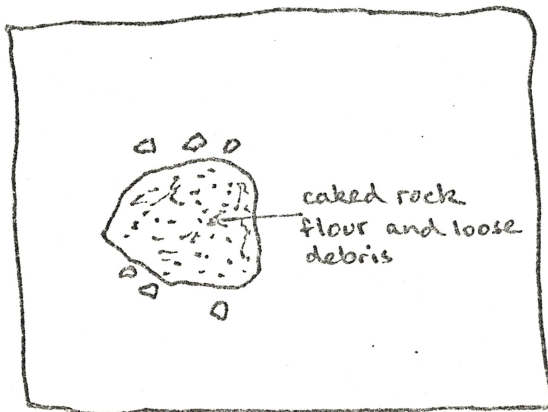 caked rock
flour and loose
debris